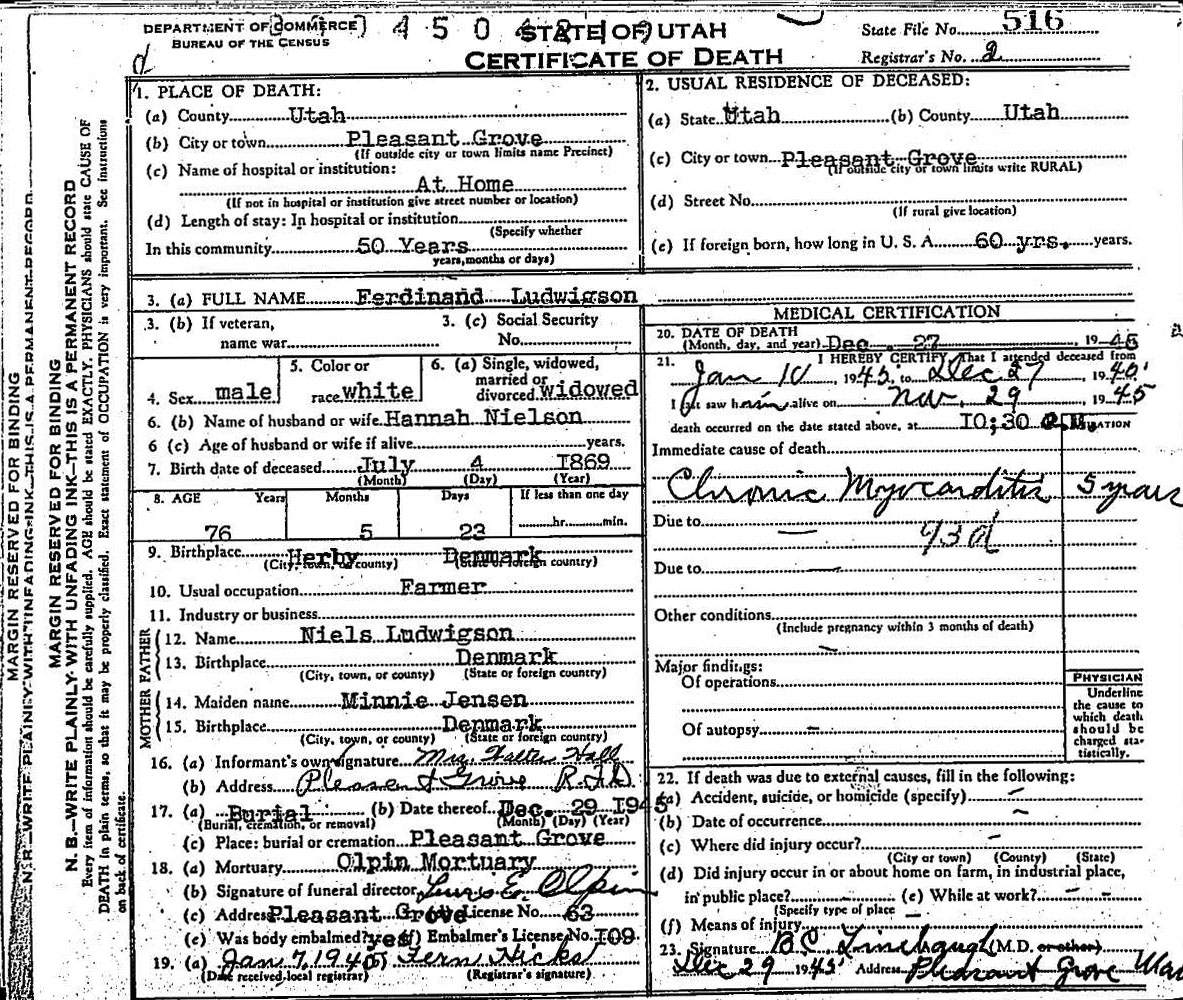 DEPARTMENT OF COMMERCE
BUREAU OF THE CENSUS
4 5 0
STATE OF UTAH
CERTIFICATE OF DEATH
State File No. 516
Registrar's No. 2
d
MARGIN RESERVED FOR BINDING
N. B.—WRITE PLAINLY WITH UNFADING INK—THIS IS A PERMANENT RECORD
MARGIN RESERVED FOR BINDING
N. B.—WRITE PLAINLY WITH UNFADING INK—THIS IS A PERMANENT RECORD
Every item of information should be carefully supplied. AGE should be stated EXACTLY. PHYSICIANS should state CAUSE OF
DEATH in plain terms, so that it may be properly classified. Exact statement of OCCUPATION is very important. See instructions
on back of certificate.
1. PLACE OF DEATH:
(a) County Utah
(b) City or town Pleasant Grove
(If outside city or town limits name Precinct)
(c) Name of hospital or institution:
At Home
(If not in hospital or institution give street number or location)
(d) Length of stay: In hospital or institution
(Specify whether
In this community 50 Years
years, months or days)
2. USUAL RESIDENCE OF DECEASED:
(a) State Utah (b) County Utah
(c) City or town Pleasant Grove
(If outside city or town limits write RURAL)
(d) Street No.
(If rural give location)
(e) If foreign born, how long in U. S. A. 60 yrs. years.
3. (a) FULL NAME Ferdinand Ludwigson
3. (b) If veteran, 3. (c) Social Security
name war No.
4. Sex male 5. Color or race white 6. (a) Single, widowed, married or divorced widowed
6. (b) Name of husband or wife Hannah Nielson
6 (c) Age of husband or wife if alive years.
7. Birth date of deceased July 4 I869
(Month) (Day) (Year)
8. AGE Years Months Days If less than one day
76 5 23 hr. min.
9. Birthplace Herby Denmark
(City, town, or county) (State or foreign country)
10. Usual occupation Farmer
11. Industry or business
FATHER
12. Name Niels Ludwigson
13. Birthplace Denmark
(City, town, or county) (State or foreign country)
MOTHER
14. Maiden name Minnie Jensen
15. Birthplace Denmark
(City, town, or county) (State or foreign country)
16. (a) Informant's own signature Mrs. Walter Hall
(b) Address Pleasant Grove R.F.D.
17. (a) Burial (b) Date thereof Dec. 29 I945
(Burial, cremation, or removal) (Month) (Day) (Year)
(c) Place: burial or cremation Pleasant Grove
18. (a) Mortuary Olpin Mortuary
(b) Signature of funeral director E. Olpin
(c) Address Pleasant Grove License No. 63
(e) Was body embalmed? yes (f) Embalmer's License No. I09
19. (a) Jan 7, 1946 Fern Hicks
(Date received local registrar) (Registrar's signature)
MEDICAL CERTIFICATION
20. DATE OF DEATH
(Month, day, and year) Dec. 27 1945
21. I HEREBY CERTIFY, That I attended deceased from
Jan 10, 1945, to Dec 27, 1945
I last saw him alive on Nov. 29, 1945
death occurred on the date stated above, at I0:30 M. DURATION
Immediate cause of death
Chronic Myocarditis 5 years
Due to — 93d
Due to —
Other conditions
(Include pregnancy within 3 months of death)
Major findings:
Of operations
Of autopsy –
PHYSICIAN
Underline
the cause to
which death
should be
charged sta-
tistically.
22. If death was due to external causes, fill in the following:
(a) Accident, suicide, or homicide (specify) –
(b) Date of occurrence –
(c) Where did injury occur? –
(City or town) (County) (State)
(d) Did injury occur in or about home on farm, in industrial place,
in public place? – (e) While at work? –
(Specify type of place
(f) Means of injury –
23. Signature B C Linebaugh (M.D. or other)
Dec 29 1945 Address Pleasant Grove Utah